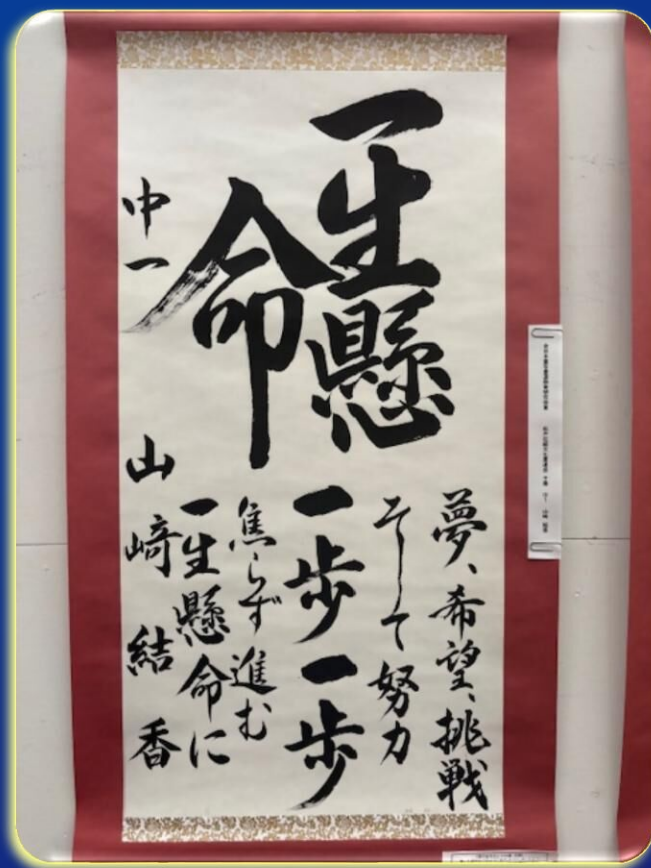 一生懸
命
夢、希望、挑戦
そして努力
一歩一歩
焦らず進む
一生懸命に
中一 山崎結香